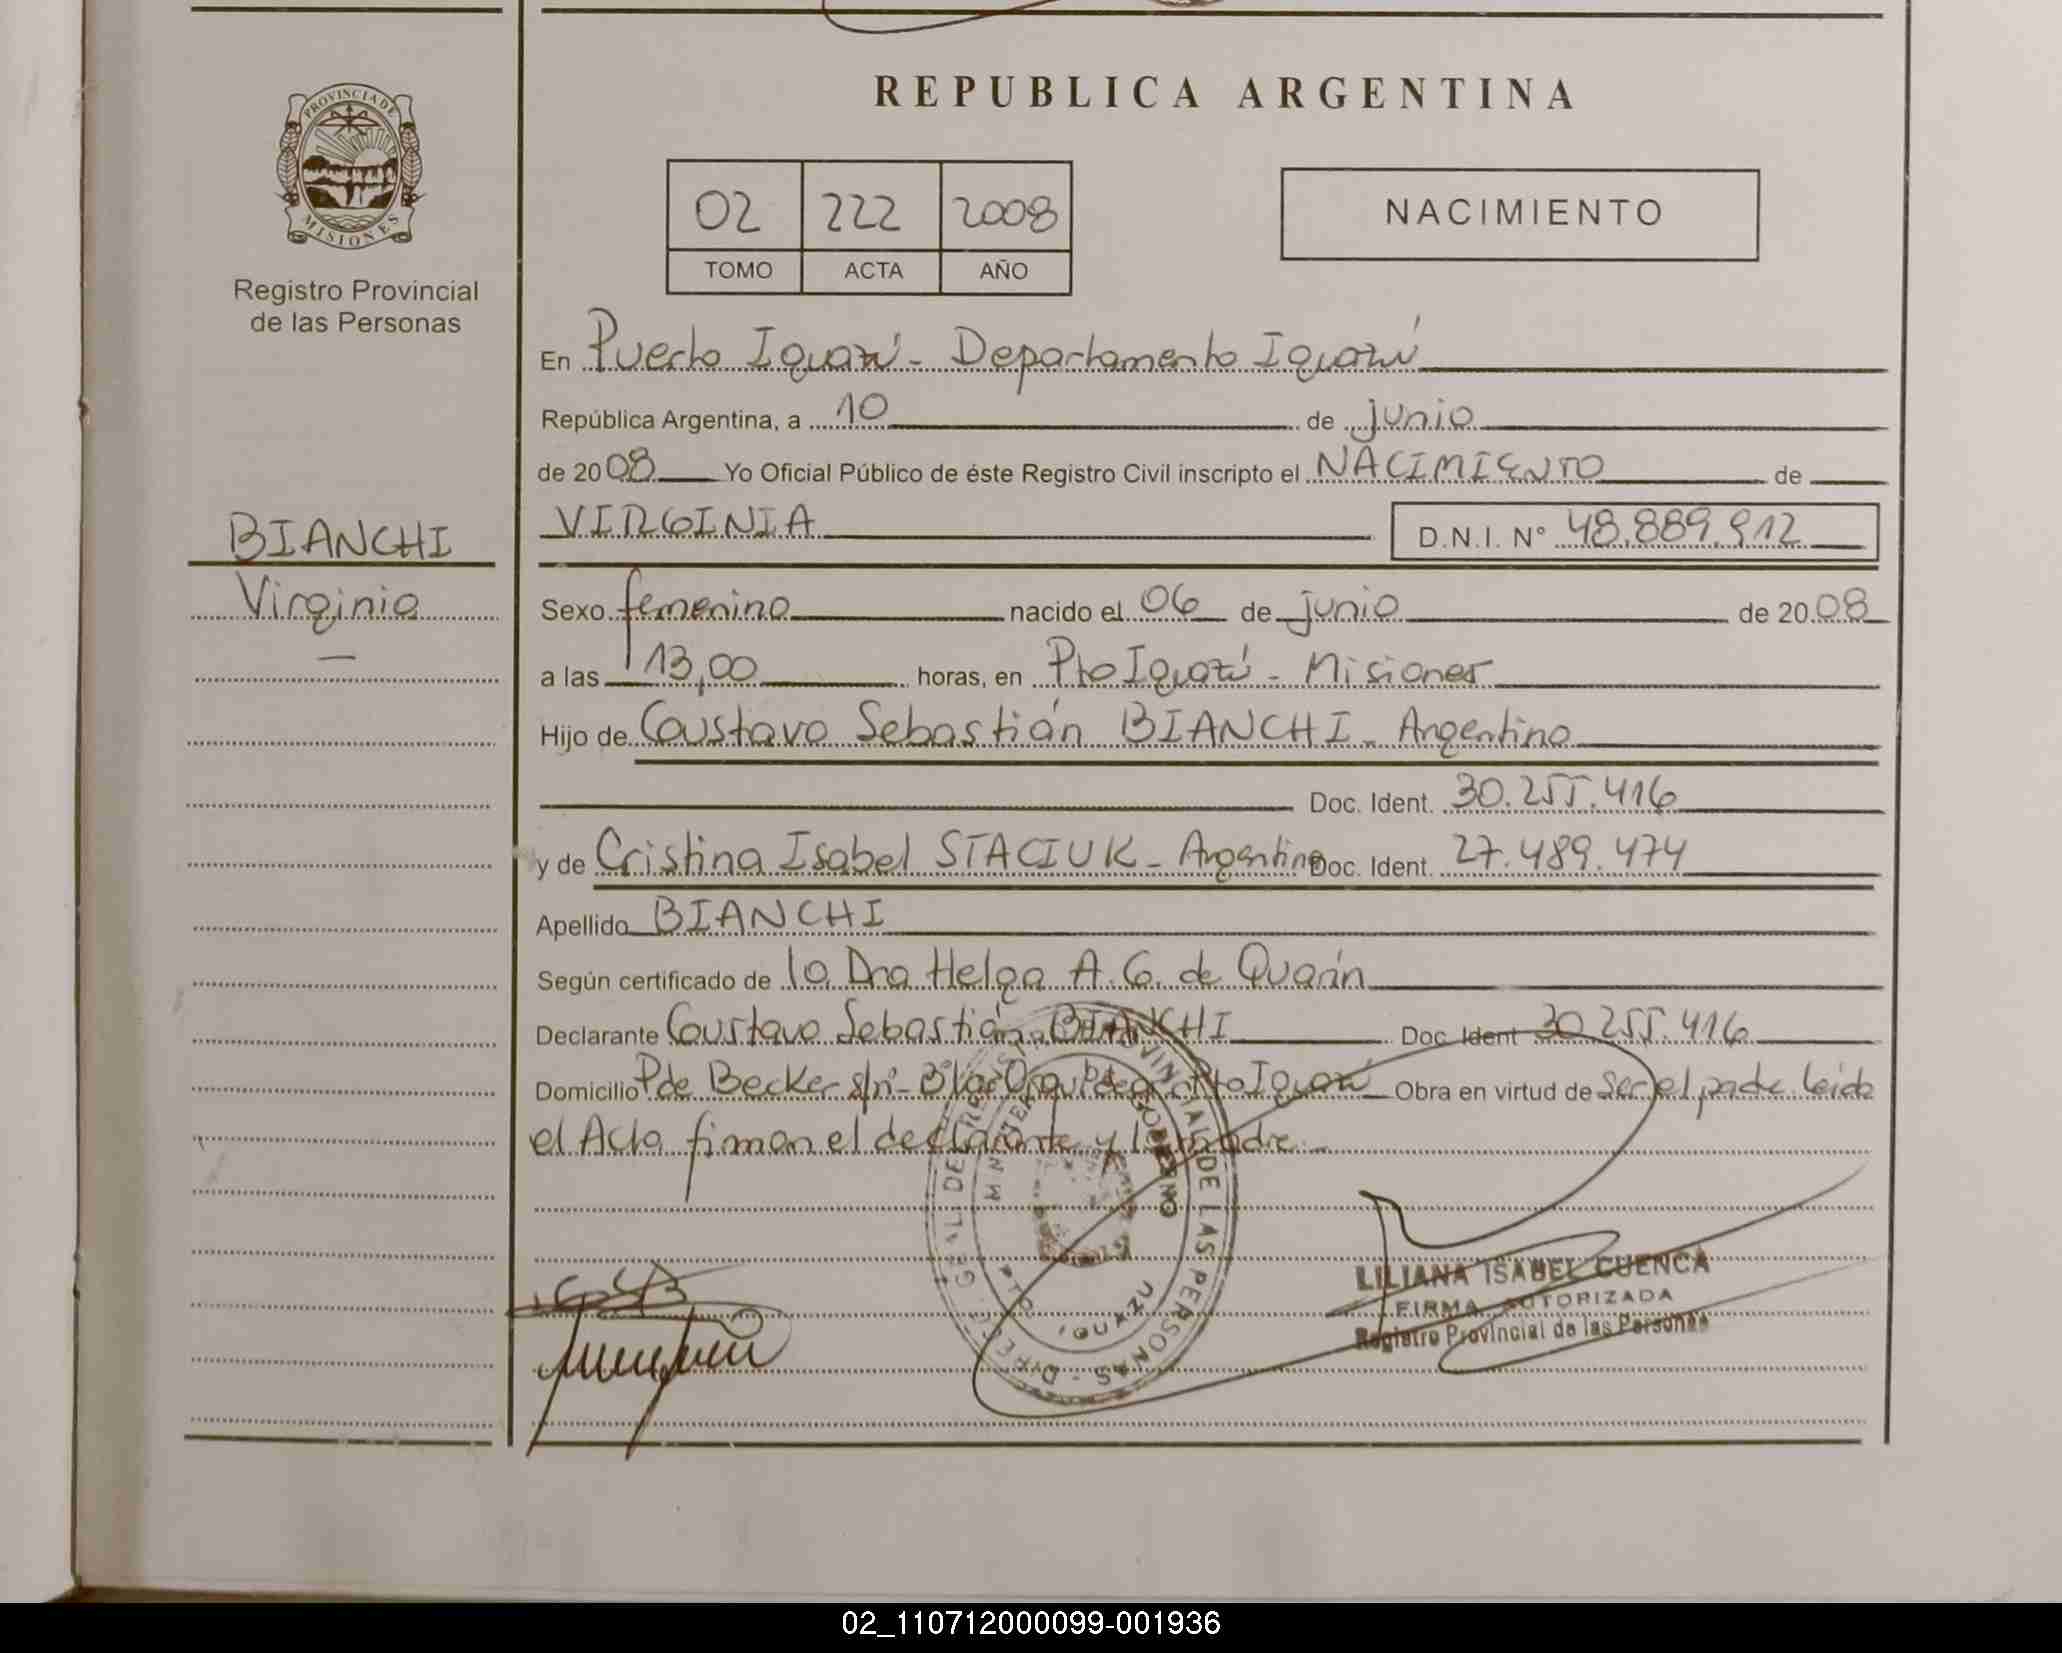 REPUBLICA ARGENTINA
PROVINCIA DE
MISIONES
Registro Provincial
de las Personas
02 222 2008
TOMO ACTA AÑO
NACIMIENTO
En Puerto Iguazú - Departamento Iguazú
República Argentina, a 10 de junio
de 2008 Yo Oficial Público de éste Registro Civil inscripto el NACIMIENTO de
BIANCHI
Virginia
VIRGINIA D.N.I. Nº 48.889.912
Sexo femenino nacido el 06 de junio de 2008
a las 13,00 horas, en Pto Iguazú - Misiones
Hijo de Gustavo Sebastián BIANCHI - Argentino
Doc. Ident. 30.255.416
y de Cristina Isabel STACIUK - Argentina Doc. Ident. 27.489.474
Apellido BIANCHI
Según certificado de la Dra Helga A. G. de Quarín
Declarante Gustavo Sebastián BIANCHI Doc. Ident 30.255.416
Domicilio P. de Becker s/nº - Bº Las Orquídeas Pto Iguazú Obra en virtud de ser el padre leida
el Acta firman el declarante y la madre -
DIRECC. GRAL. DE REGISTRO PROVINCIAL DE LAS PERSONAS
MINISTERIO DE GOBIERNO
PTO IGUAZU
LILIANA ISABEL CUENCA
FIRMA AUTORIZADA
Registro Provincial de las Personas
02_110712000099-001936